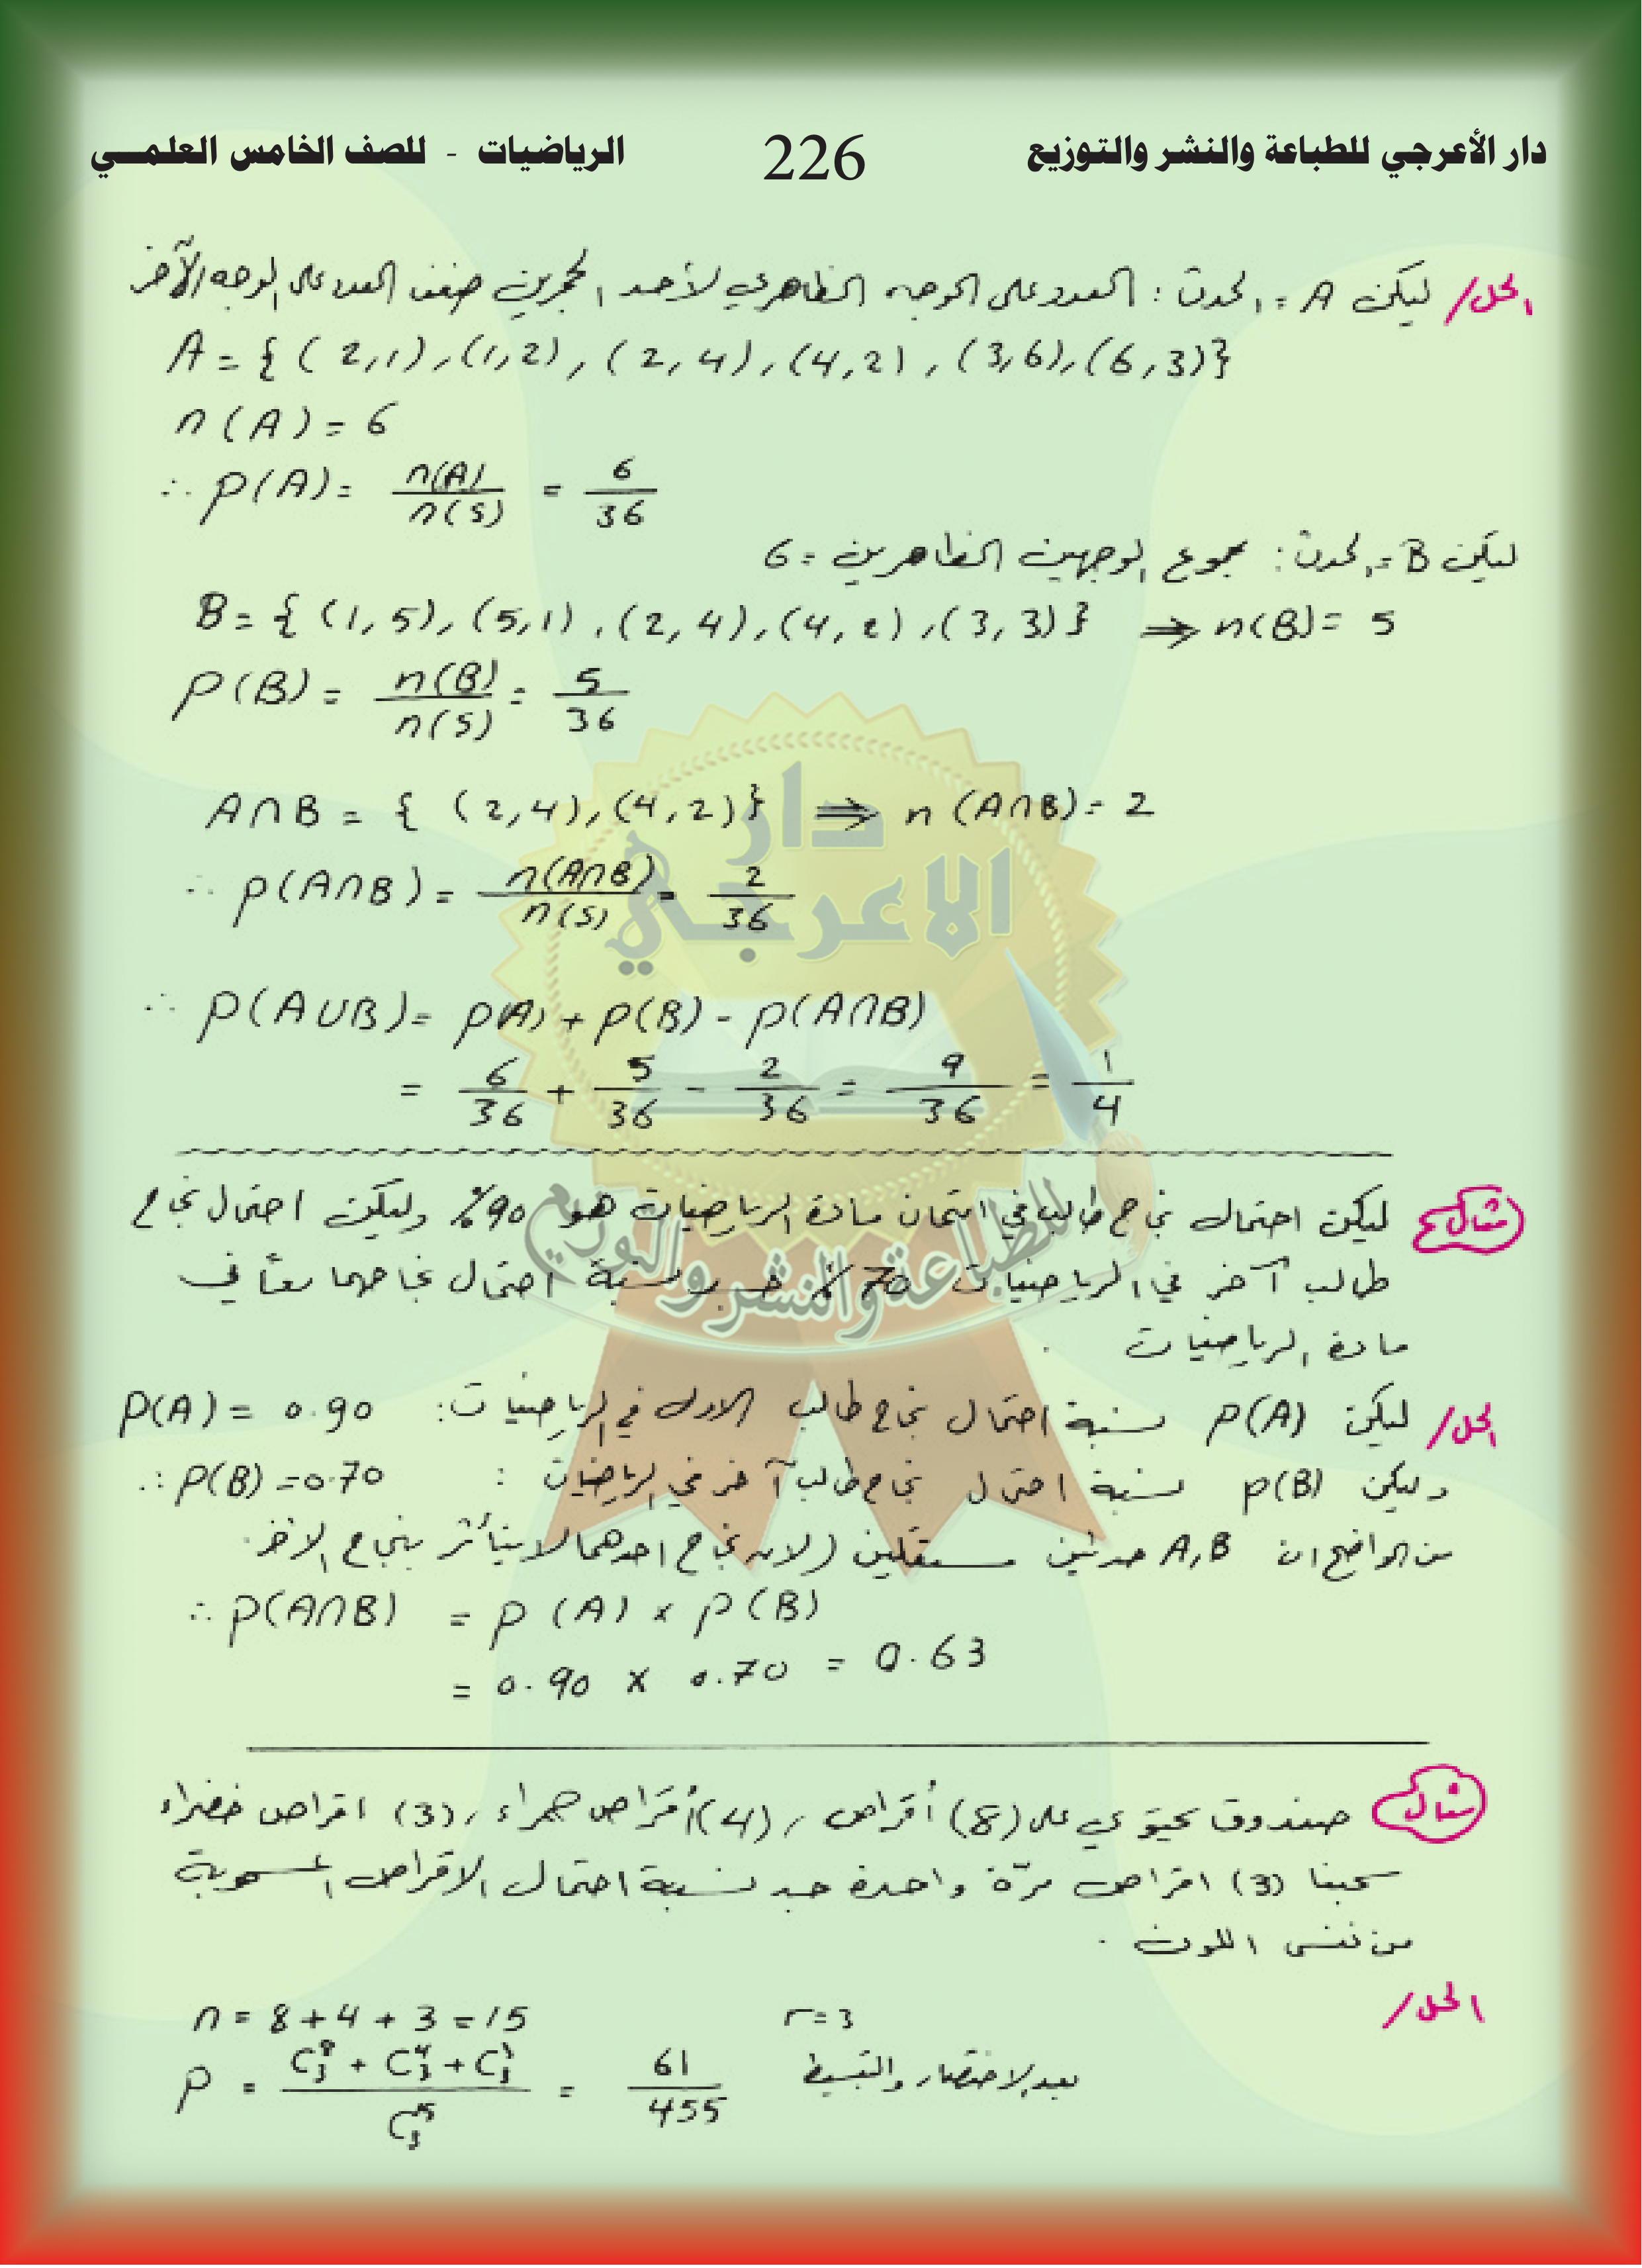 دار الأعرجي للطباعة والنشر والتوزيع 226 الرياضيات - للصف الخامس العلمـــي
الحل/ ليكن A = الحدث : العدد على الوجه الظاهري لأحد الحجرين ضعف العدد على الوجه الآخر
A = { (2,1), (1,2), (2,4), (4,2), (3,6), (6,3)}
n(A) = 6
∴ p(A) = n(A)/n(S) = 6/36
ليكن B = الحدث : مجموع الوجهين الظاهرين = 6
B = { (1,5), (5,1), (2,4), (4,2), (3,3)} ⇒ n(B) = 5
P(B) = n(B)/n(S) = 5/36
A∩B = { (2,4), (4,2)} ⇒ n(A∩B) = 2
∴ p(A∩B) = n(A∩B)/n(S) = 2/36
∴ P(A∪B) = p(A) + p(B) - p(A∩B)
= 6/36 + 5/36 - 2/36 = 9/36 = 1/4
مثال ليكن احتمال نجاح طالب في امتحان مادة الرياضيات هو 90% وليكن احتمال نجاح
طالب آخر في الرياضيات 70% جد نسبة احتمال نجاحهما معاً في
مادة الرياضيات .
الحل/ ليكن p(A) نسبة احتمال نجاح طالب الاول في الرياضيات: P(A) = 0.90
وليكن p(B) نسبة احتمال نجاح طالب آخر في الرياضيات : ∴ P(B) = 0.70
من الواضح ان A,B حدثين مستقلين (لان نجاح احدهما لا يتأثر بنجاح الاخر.
∴ P(A∩B) = p(A) × p(B)
= 0.90 × 0.70 = 0.63
مثال صندوق يحتوي على (8) أقراص , (4) أقراص حمراء , (3) اقراص خضراء
سحبنا (3) اقراص مرّة واحدة جد نسبة احتمال الاقراص المسحوبة
من نفس اللون .
الحل/
n = 8 + 4 + 3 = 15 r = 3
p = (C⁸₃ + C⁴₃ + C³₃)/C¹⁵₃ = 61/455 بعد الاختصار والتبسيط
دار
الاعرجي
للطباعة والنشر والتوزيع